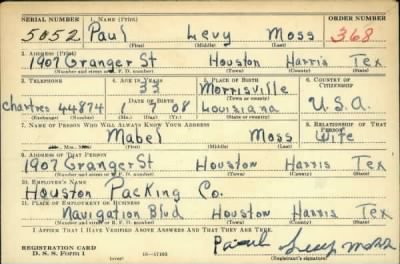 SERIAL NUMBER 1. NAME (Print) ORDER NUMBER
5052 Paul Levy Moss 368
(First) (Middle) (Last)
2. ADDRESS (Print)
1907 Granger St Houston Harris Tex
(Number and street or R. F. D. number) (Town) (County) (State)
3. TELEPHONE 4. AGE IN YEARS 5. PLACE OF BIRTH 6. COUNTRY OF CITIZENSHIP
33 Morrisville
DATE OF BIRTH (Town or county)
Chartres 44874 1 7 08 Louisiana U.S.A.
(Exchange) (Number) (Mo.) (Day) (Yr.) (State or country)
7. NAME OF PERSON WHO WILL ALWAYS KNOW YOUR ADDRESS 8. RELATIONSHIP OF THAT PERSON
Mabel Moss Wife
(First) (Middle) (Last)
9. ADDRESS OF THAT PERSON
1907 Granger St Houston Harris Tex
(Number and street or R. F. D. number) (Town) (County) (State)
10. EMPLOYER'S NAME
Houston Packing Co.
11. PLACE OF EMPLOYMENT OR BUSINESS
Navigation Blvd Houston Harris Tex
(Number and street or R. F. D. number) (Town) (County) (State)
I AFFIRM THAT I HAVE VERIFIED ABOVE ANSWERS AND THAT THEY ARE TRUE.
REGISTRATION CARD
D. S. S. Form 1 16—17105 Paul Levy Moss
(Registrant's signature)